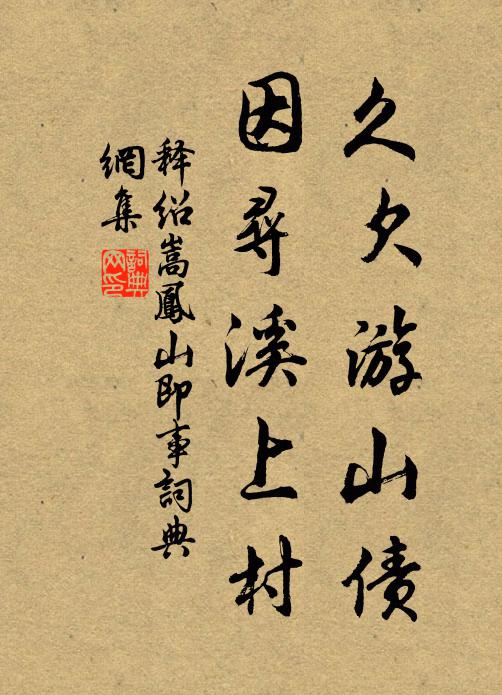 久欠游山债
因寻溪上村
释绍嵩鳳山即事詞典
網集
詞典
网印